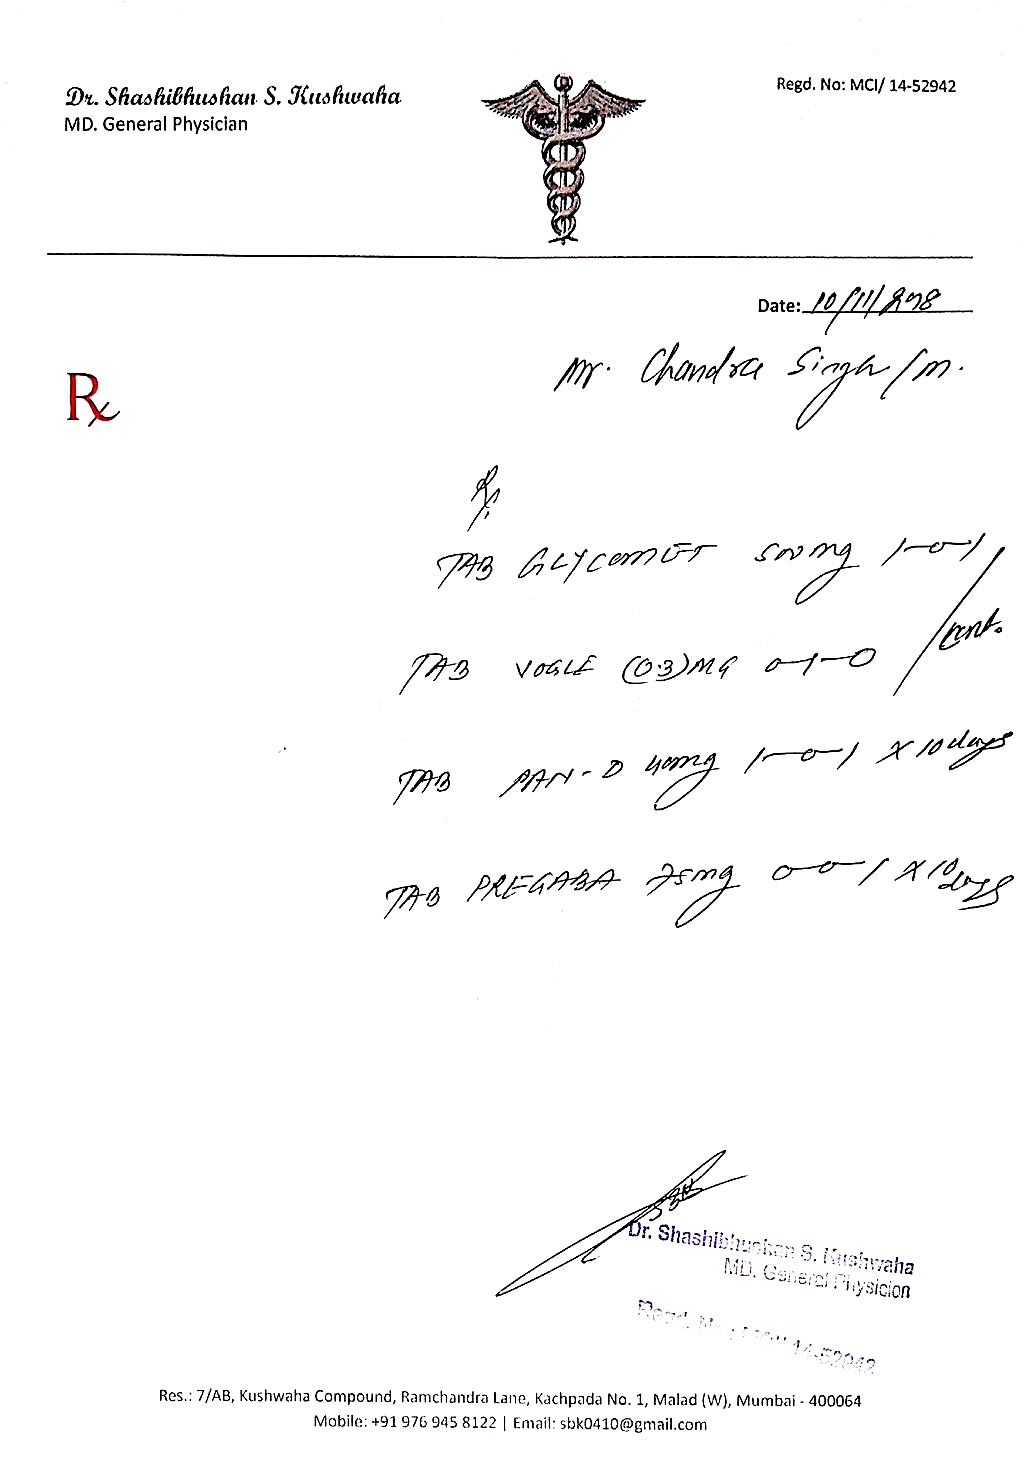 Dr. Shashibhushan S. Kushwaha
MD. General Physician
Regd. No: MCI/ 14-52942
Date: 10/11/2018
Mr. Chandra Singh /m.
Rx
Rx
TAB GLYCOMET 500mg 1-0-1
cont.
TAB VOGLE (0.3)MG 0-1-0
TAB PAN-D 40mg 1-0-1 X 10 days
TAB PREGABA 75mg 0-0-1 X 10 days
Dr. Shashibhushan S. Kushwaha
MD. General Physicion
Regd. No.: MCI/ 14-52942
Res.: 7/AB, Kushwaha Compound, Ramchandra Lane, Kachpada No. 1, Malad (W), Mumbai - 400064
Mobile: +91 976 945 8122 | Email: sbk0410@gmail.com